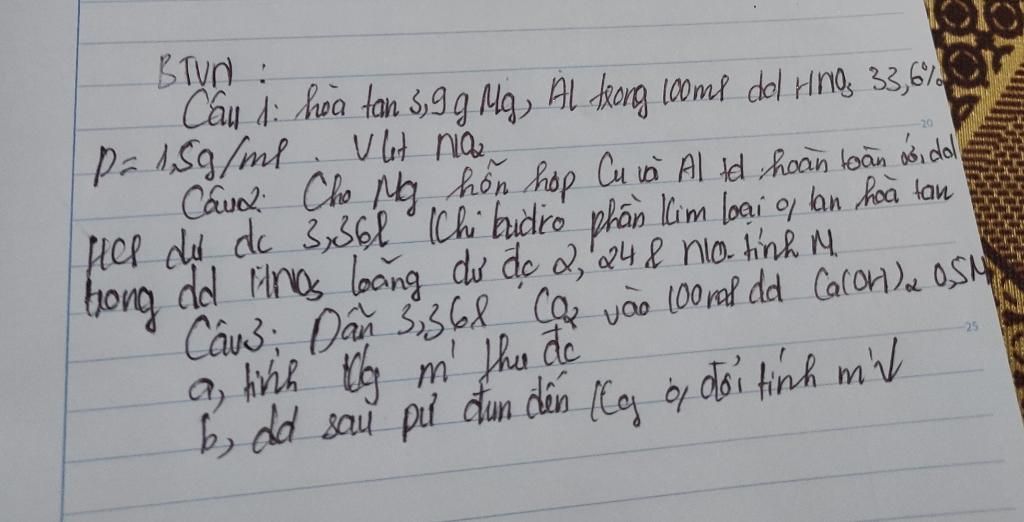 BTVN :
Câu 1: hòa tan 3,9g Mg, Al trong 100ml dd HNO3 33,6%
D= 1,5g/ml . V lít NO2
20
Câu2: Cho Mg hỗn hợp Cu và Al td hoàn toàn với dd
HCl dư đc 3,36l khí hiđro phần kim loại o/ tan hoà tan
trong dd HNO3 loãng dư đc 2,24l NO. tính M
Câu3: Dẫn 3,36l CO2 vào 100ml dd Ca(OH)2 0,5M
25
a, tính Kg m' thu đc
b, dd sau pứ đun đến Kg o/ đổi tính m'↓